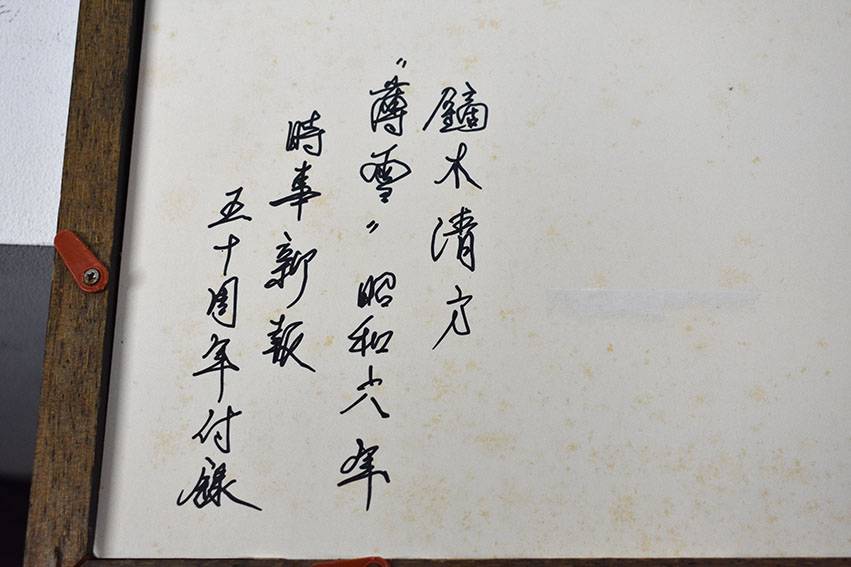 鏑木清方
"薄雪"昭和六年
時事新報
五十周年付録